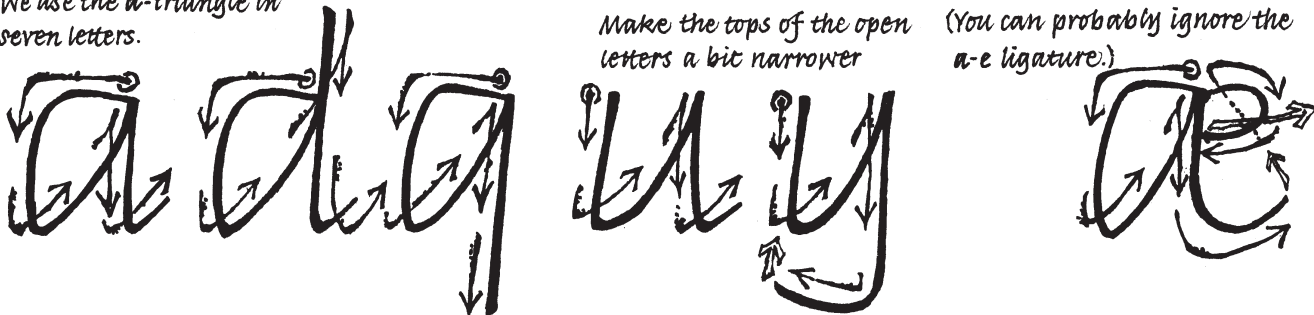 We use the a-triangle in
seven letters.
a d q
Make the tops of the open
letters a bit narrower
u y
(You can probably ignore the
a-e ligature.)
æ